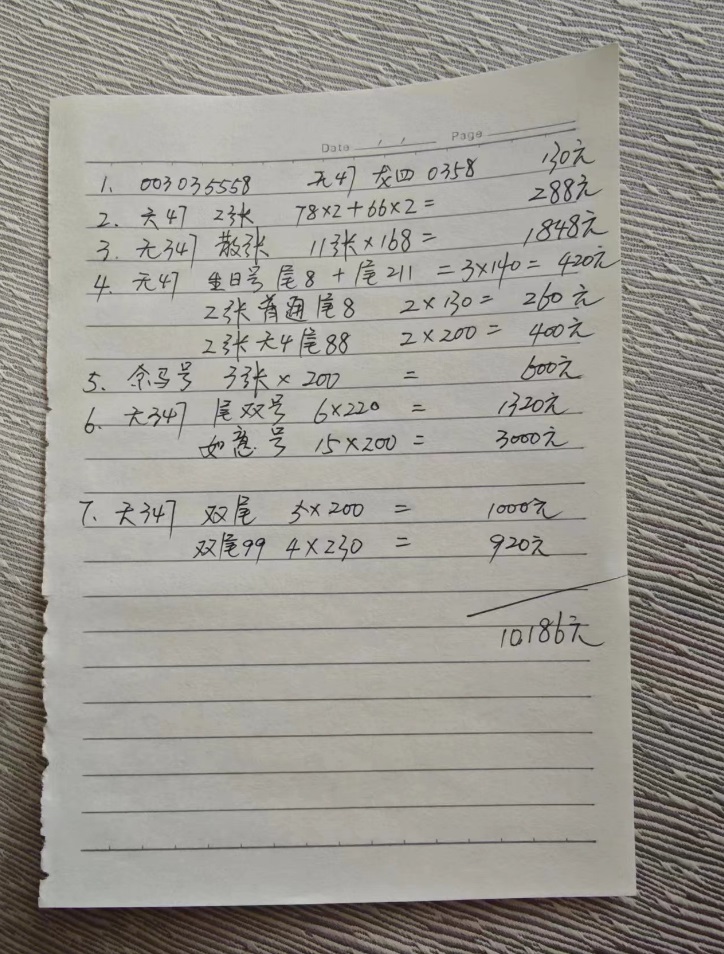 Date / / Page
1、003035558 无47 龙四 0358 130元
2、天47 2张 78×2+66×2= 288元
3、无347 散张 11张×168= 1848元
4、无47 生日号 尾8 + 尾211 = 3×140= 420元
2张普通尾8 2×130= 260元
2张无4尾88 2×200= 400元
5、 3张×200 = 600元
6、无347 尾双号 6×220 = 1320元
如意号 15×200= 3000元
7、无347 双尾 5×200 = 1000元
双尾99 4×230 = 920元
10186元